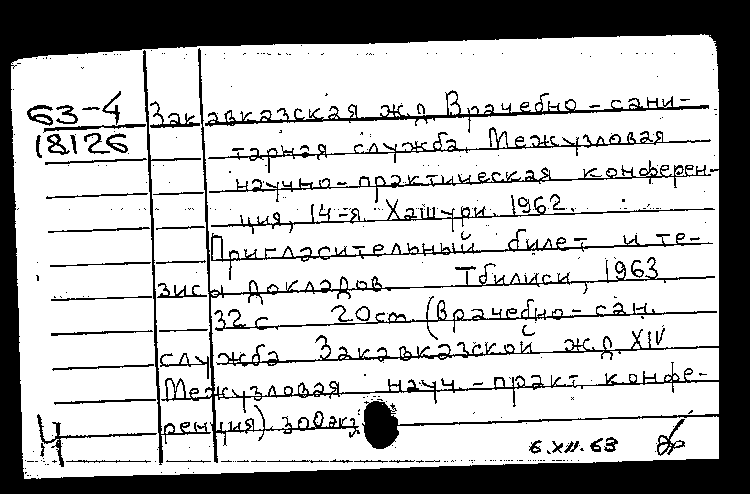 63-4 Закавказская ж.д. Врачебно-сани-
18126 тарная служба. Межузловая
научно-практическая конферен-
ция, 14-я. Хашури. 1962.
Пригласительный билет и те-
зисы докладов. Тбилиси, 1963.
32 с. 20 см. (Врачебно-сан.
служба Закавказской ж.д. XIV
Межузловая науч-практ. конфе-
ренция). 300 экз.
Ч 6.XII.63